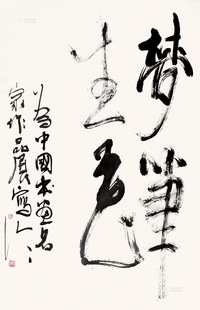 梦笔
生花
为中国书画名
家作品展写